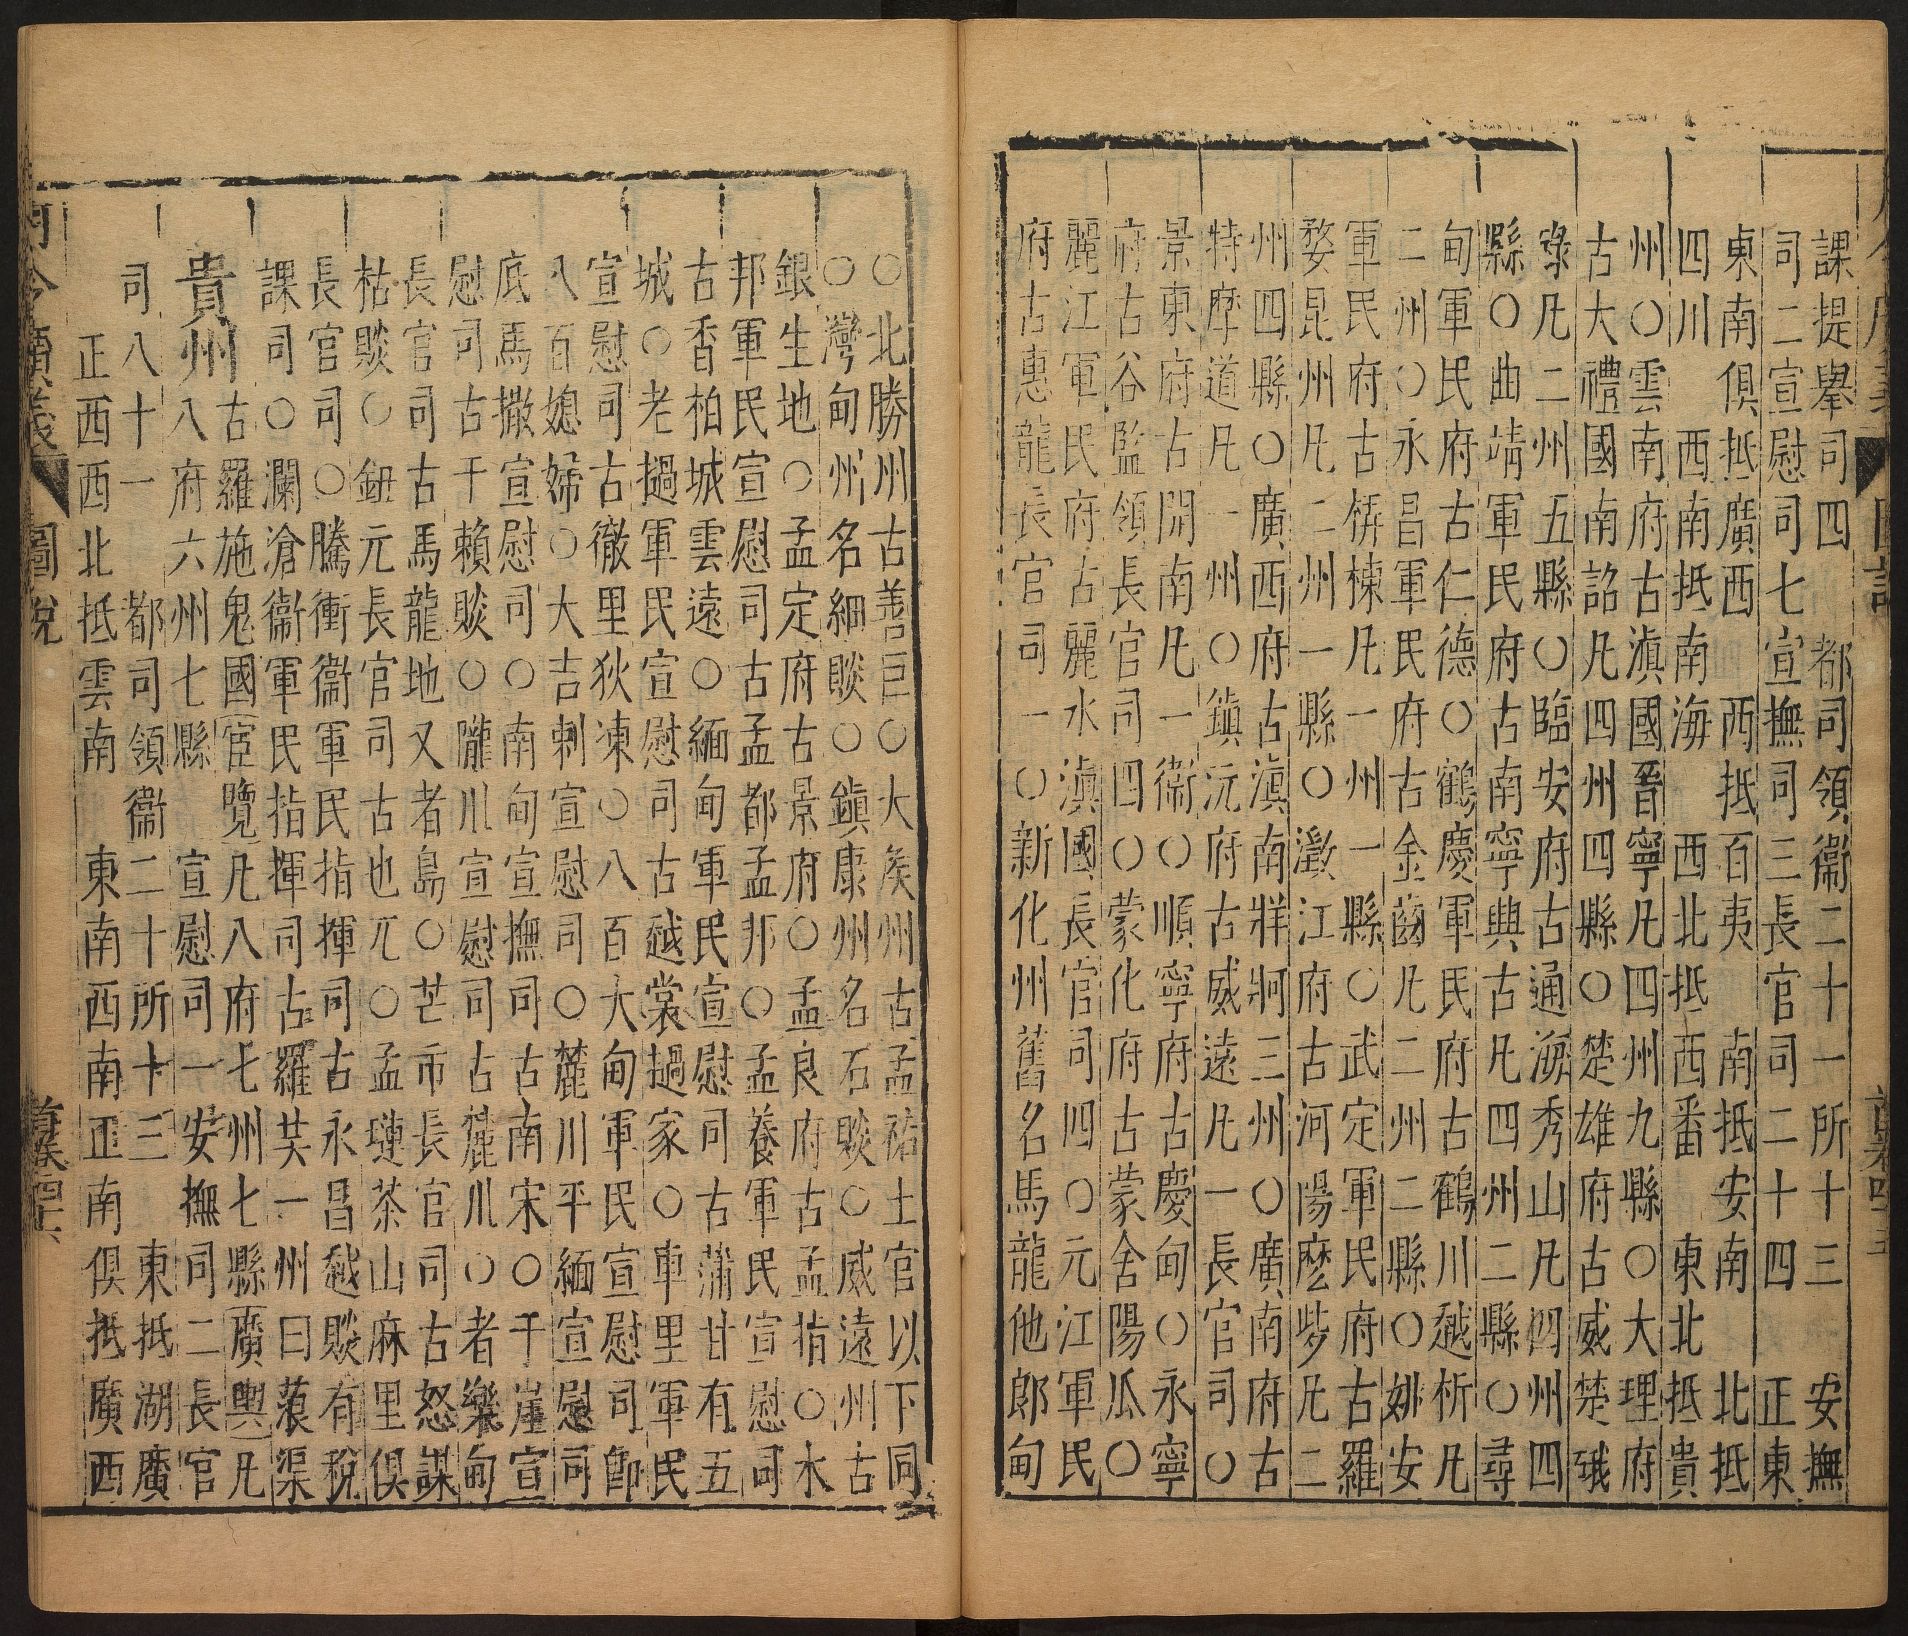 課提舉司四 都司領衞二十一所十三 安撫
司二宣慰司七宣撫司三長官司二十四 正東
東南俱抵廣西 西抵百夷 南抵安南 北抵
四川 西西南抵南海 西北抵西番 東北抵貴
州〇雲南府古滇國晉寧凡四州九縣〇大理府
古大禮國南詔凡四州四縣〇楚雄府古威楚硪
碌凡二州五縣〇臨安府古通海秀山凡四州四
縣〇曲靖軍民府古南寧興古凡四州二縣〇尋
甸軍民府古仁德〇鶴慶軍民府古鶴川越析凡
二州〇永昌軍民府古金齒凡二州二縣〇姚安
軍民府古㭓棟凡一州一縣〇武定軍民府古羅
婺昆州凡二州一縣〇澂江府古河陽麽㱔凡二
州四縣〇廣西府古滇南牂牁三州〇廣南府古
特摩道凡一州〇鎮沅府古威遠凡一長官司〇
景東府古開南凡一衞〇順寧府古慶甸〇永寧
府古谷監領長官司四〇蒙化府古蒙舍陽瓜〇
麗江軍民府古麗水滇國長官司四〇元江軍民
府古惠龍長官司一〇新化州舊名馬龍他郎甸
〇北勝州古善巨〇大侯州古孟祐土官以下同
〇灣甸州名細賧〇鎮康州名石賧〇威遠州古
銀生地〇孟定府古景府〇孟良府古孟掯〇木
邦軍民宣慰司古孟都孟邦〇孟養軍民宣慰司
古香柏城雲遠〇緬甸軍民宣慰司古蒲甘有五
城〇老撾軍民宣慰司古越裳撾家〇車里軍民
宣慰司古徹里狄凍〇八百大甸軍民宣慰司卽
八百媳婦〇大吉剌宣慰司〇麓川平緬宣慰司
底馬撒宣慰司〇南甸宣撫司古南宋〇干崖宣
慰司古干賴賧〇隴川宣慰司古麓川〇者樂甸
長官司古馬龍地又者島〇芒市長官司古怒謀
枯賧〇鈕元長官司古也兀〇孟璉茶山麻里俱
長官司〇騰衝衞軍民指揮司古永昌越賧有稅
課司〇瀾滄衞軍民指揮司古羅共一州曰蒗渠
貴州古羅施鬼國宦覽凡八府七州七縣廣輿凡
八府六州七縣 宣慰司一安撫司二長官
司八十一 都司領衞二十所十三 東抵湖廣
正西西北抵雲南 東南西南正南俱抵廣西
古今廣義 圖說 首卷四十六